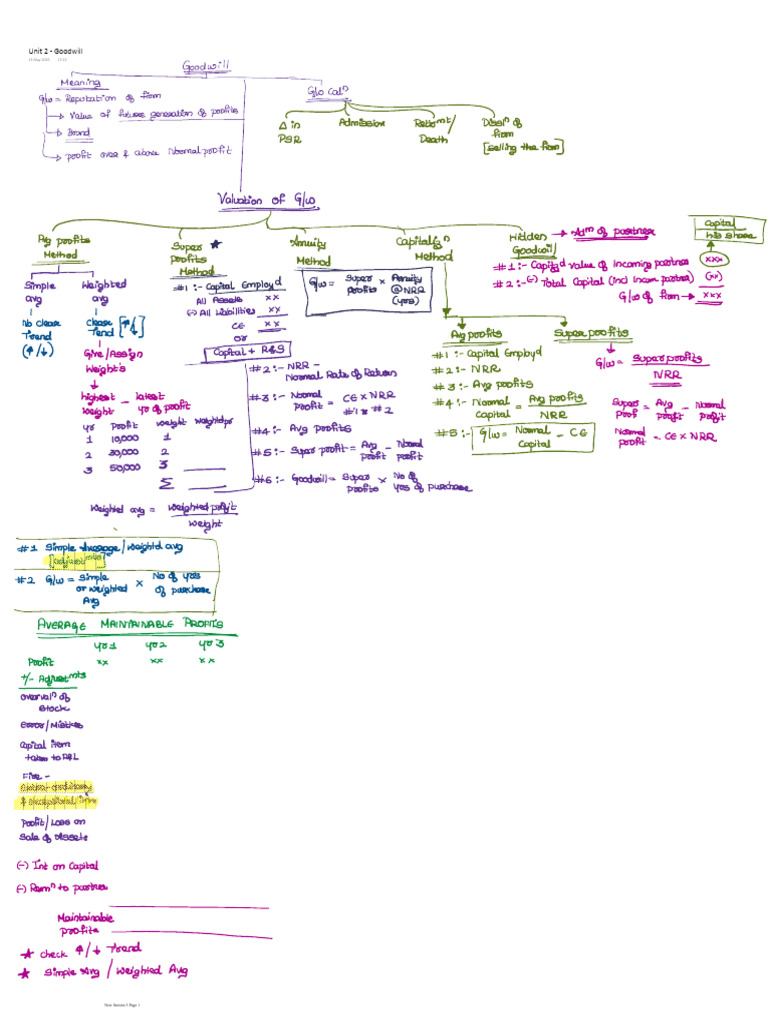 Unit 2 - Goodwill
Goodwill
Meaning
G/w = Reputation of firm
→ Value of future generation of profits
→ Brand
→ profit over & above Normal profit
G/w Calⁿ
Δ in PSR
Admission
Retirᵐᵗ/ Death
Dissⁿ of firm
[selling the firm]
Valuation of G/w
Avg profits Method
Simple avg
No clear Trend
(↑/↓)
Weighted avg
Clear Trend [↑/↓]
Give/Assign Weight's
highest weight – latest yr of profit
yr Profit weight weighted pr
1 10,000 1
2 30,000 2
3 50,000 3
Σ
Weighted avg = Weighted profit / Weight
Super profits Method
#1 :- Capital Employd
All Assets xx
(-) All liabilities xx
CE xx
or
Capital + R&S
#2 :- NRR – Normal Rate of Return
#3 :- Normal profit = CE x NRR
#1 x #2
#4 :- Avg Profits
#5 :- Super profit = Avg profit – Normal profit
#6 :- Goodwill = Super profits x No of yrs of purchase
Annuity Method
G/w = Super Profits x Annuity @NRR (yrs)
Capitalizⁿ Method
Avg profits
#1 :- Capital Employd
#2 :- NRR
#3 :- Avg profits
#4 :- Normal Capital = Avg profits / NRR
#5 :- G/w = Normal Capital – CE
Super profits
G/w = Super profits / NRR
Super Prof = Avg Prof – Normal Profit
Normal profit = CE x NRR
Hidden Goodwill → Adᵐ of partner
#1 :- Capitzd value of Incoming partner xxx
#2 :- (-) Total Capital (Incl Incom partner) (xx)
G/w of firm → xxx
Capital
his share
#1 Simple Average/Weightd avg
[adjustᵐᵗˢ]
#2 G/w = Simple or weighted Avg x No of yrs of purchase
AVERAGE MAINTAINABLE PROFITS
yr 1 yr 2 yr 3
Profit xx xx xx
+/- Adjustᵐᵗˢ
overvalⁿ of Stock
Error/Mistakes
Capital item taken to P&L
Fire –
Profit/Loss on Sale of Assets
(-) Int on Capital
(-) Remⁿ to partner
Maintainable profits
★ check ↑/↓ Trend
★ Simple Avg / Weighted Avg